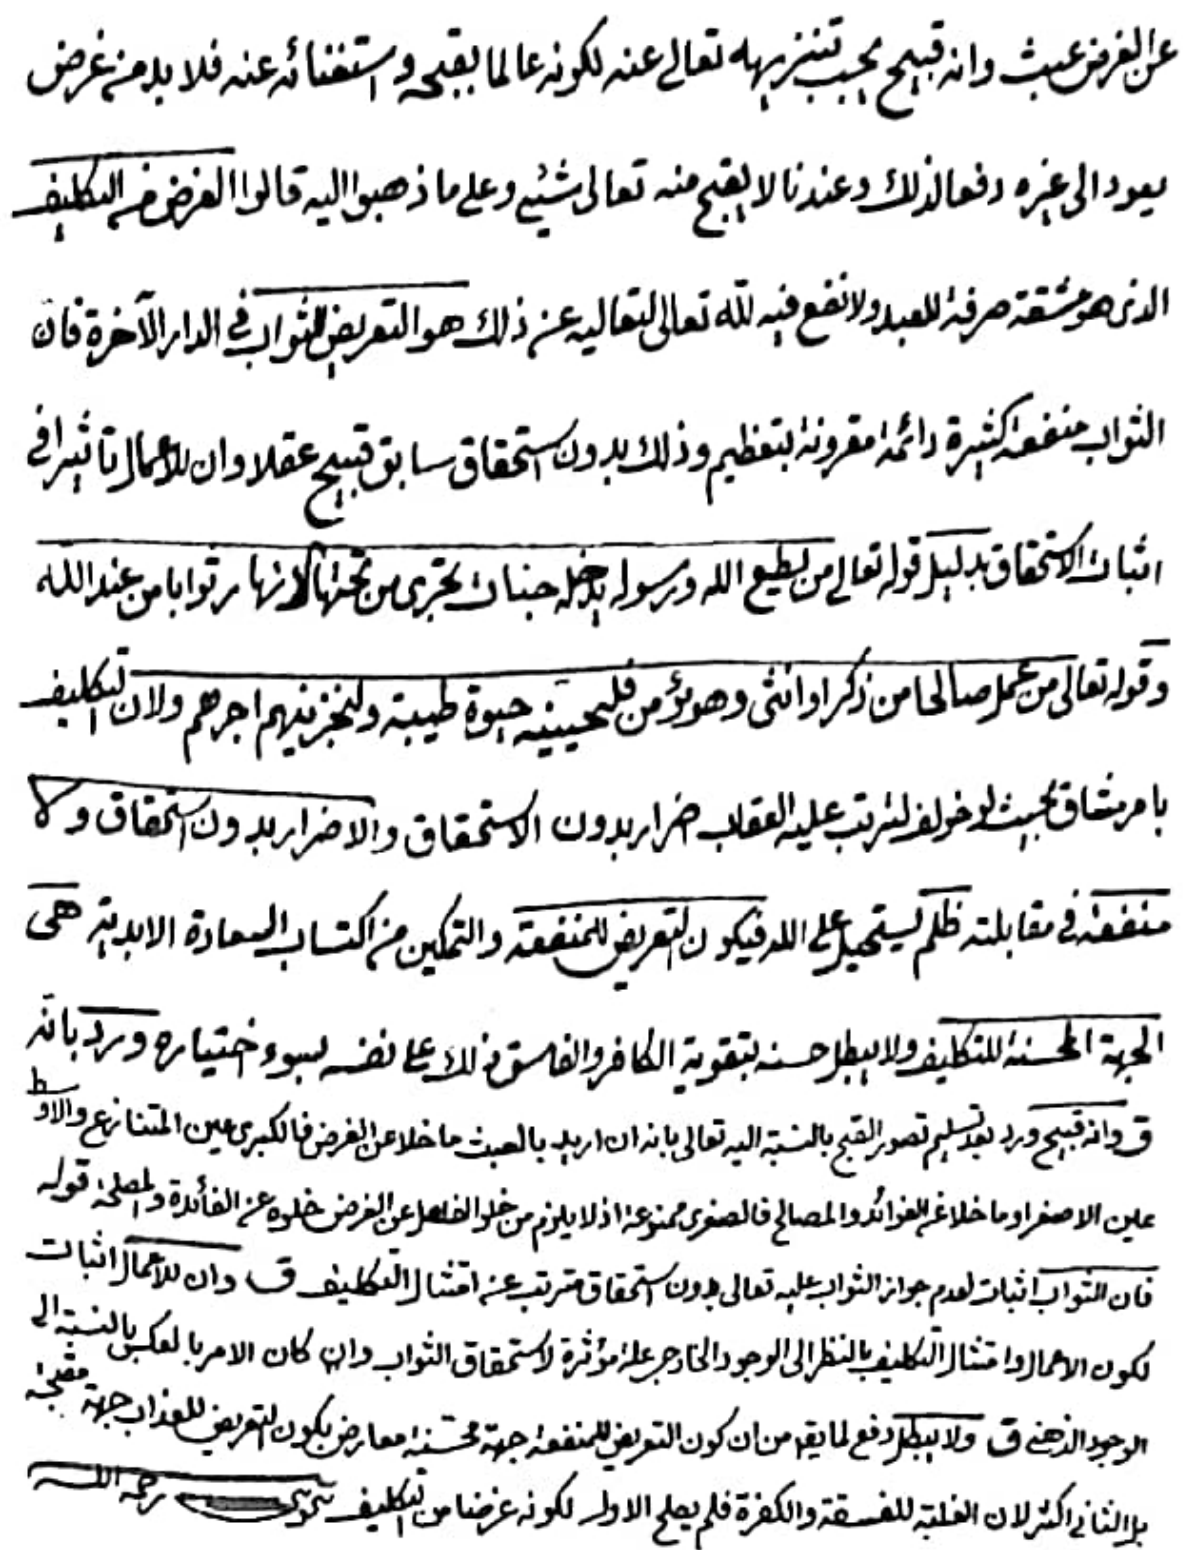 عن الغرض عبث وانه قبيح يجب تنزيهه تعالى عنه لكونه عالما بقبحه واستغنائه عنه فلا بد من غرض
يعود الى غيره دفعا لذلك وعندنا لا يقبح منه تعالى شيء وعلى ما ذهبوا اليه قالوا الغرض من التكليف
الذى هو مشقة صرفة للعبد ولا نفع فيه لله تعالى لتعاليه عن ذلك هو التعريض للثواب في الدار الآخرة فان
الثواب منفعة كثيرة دائمة مقرونة بتعظيم وذلك بدون استحقاق سابق قبيح عقلا وان للاعمال تاثيرا في
اثبات الاستحقاق بدليل قوله تعالى من يطيع الله ورسوله يدخله جنات تجرى من تحتها الانهار ثوابا من عند الله
وقوله تعالى من عمل صالحا من ذكر او انثى وهو مؤمن فلنحيينه حيوة طيبة ولنجزينهم اجرهم ولان التكليف
بامر شاق بحيث لو خولف لترتب عليه العقاب اضرار بدون الاستحقاق والاضرار بدون استحقاق ولا
منفعة في مقابلته ظلم يستحيل على الله فيكون التعريض للمنفعة والتمكين من اكتساب السعادة الابدية هى
الجهة المحسنة للتكليف ولا يبطل حسنه بتقوية الكافر والفاسق ذلك على نفسه بسوء اختياره ورد بانه
ق وانه قبيح ورد بعد تسليم تصور القبح بالنسبة اليه تعالى بانه ان اريد بالعبث ما خلا عن الغرض فالكبرى عين المتنازع والاوسط
عين الاصغر او ما خلا عن الفوائد والمصالح فالصغرى ممنوعة اذ لا يلزم من خلو الفاعل عن الغرض خلوه عن الفائدة والمصلحة قوله
فان الثواب اثبات لعدم جواز الثواب عليه تعالى بدون استحقاق مترتب عن امتثال التكليف ق وان للاعمال اثبات
لكون الاعمال وامتثال التكليف بالنظر الى الوجود الخارجى علة مؤثرة لاستحقاق الثواب وان كان الامر بالعكس بالنسبة الى
الوجود الذهنى ق ولا يبطل دفع لما يقال من ان كون التعريض للمنفعة جهة محسنة معارض بكون التعريض للعذاب جهة مقبحة
بل الثانى اكثر لان الغلبة للفسقة والكفرة فلم يصلح الاول لكونه غرضا من التكليف رحمه الله